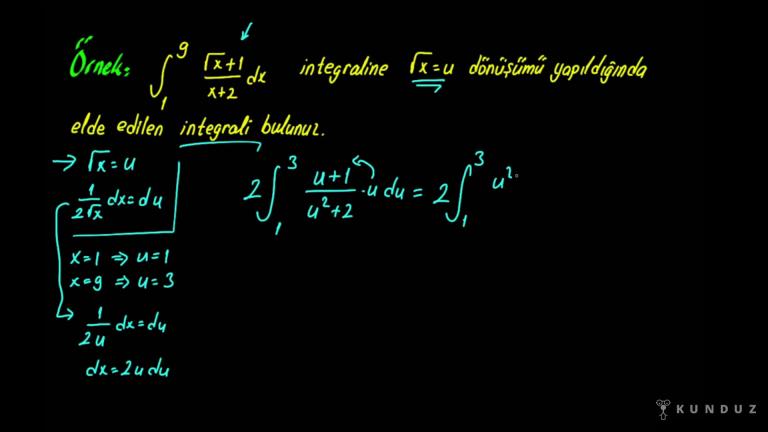 Örnek: ∫₁⁹ (√x+1)/(x+2) dx integraline √x=u dönüşümü yapıldığında
elde edilen integrali bulunuz.
→ √x=u
1/(2√x) dx=du
x=1 ⇒ u=1
x=9 ⇒ u=3
1/(2u) dx=du
dx=2u du
2∫₁³ (u+1)/(u²+2) ·u du = 2∫₁³ u²
KUNDUZ